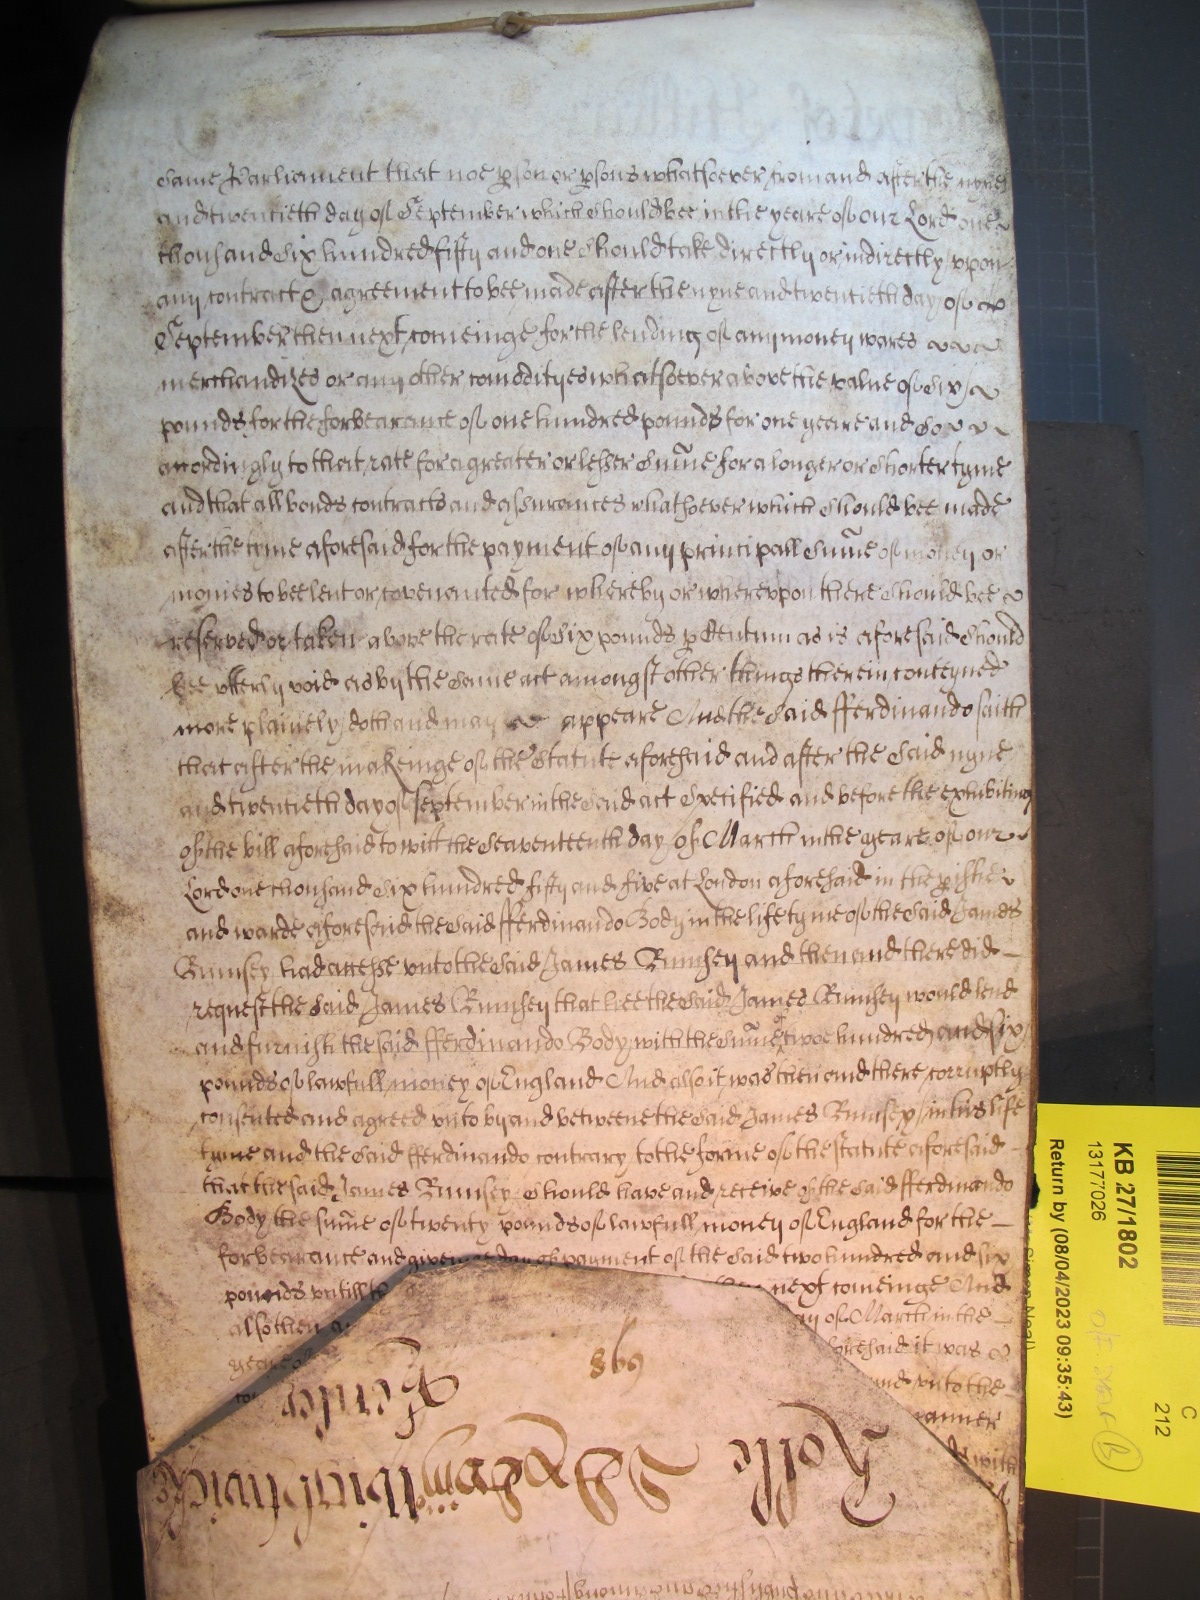 same Parliament that noe pson or psons whatsoever from and after the nyne
and twentieth day of September which should bee in the yeare of our Lord one
thousand six hundred fifty and one should take directly or indirectly upon
any contract & agreement to bee made after the nyne and twentieth day of
September then next comeinge for the lending of any money wares
merchandizes or any other comodityes whatsoever above the value of six
pounds for the forbearance of one hundred pounds for one yeare and so
accordingly to that rate for a greater or lesser sume for a longer or shorter tyme
and that all bonds contracts and assurances whatsoever which should bee made
after the tyme aforesaid for the payment of any principall sume of money or
monies to bee lent or covenanted for whereby or whereupon there should bee
reserved or taken above the rate of six pounds p Centum as is aforesaid should
bee utterly void as by the same act amongst other things therein conteyned
more plainely doth and may appeare And the said fferdinando saith
that after the makeinge of the Statute aforesaid and after the said nyne
and twentieth day of September in the said act specified and before the exhibiting
of the bill aforesaid to witt the seaventeenth day of March in the yeare of our
Lord one thousand six hundred fifty and five at London aforesaid in the pishe
and warde aforesaid the said fferdinando Body in the life tyme of the said James
Rumsey had accesse unto the said James Rumsey and then and there did
request the said James Rumsey that hee the said James Rumsey would lend
and furnish the said fferdinando Body with the sume of twoe hundred and six
pounds of lawfull money of England And also it was then and there corruptly
consented and agreed unto by and betweene the said James Rumsey in his life
tyme and the said fferdinando contrary to the forme of the statute aforesaid
that the said James Rumsey should have and receive of the said fferdinando
Body the sume of twenty pounds of lawfull money of England for the
forbearance and giveinge day of payment of the said two hundred and six
pounds untill th next comeinge And
also then a of March in the
yeare of foresaid it was
and unto the
manner
with
869
Rolle
KB 27/1802
13177026
Return by (08/04/2023 09:35:43)
C
212
B